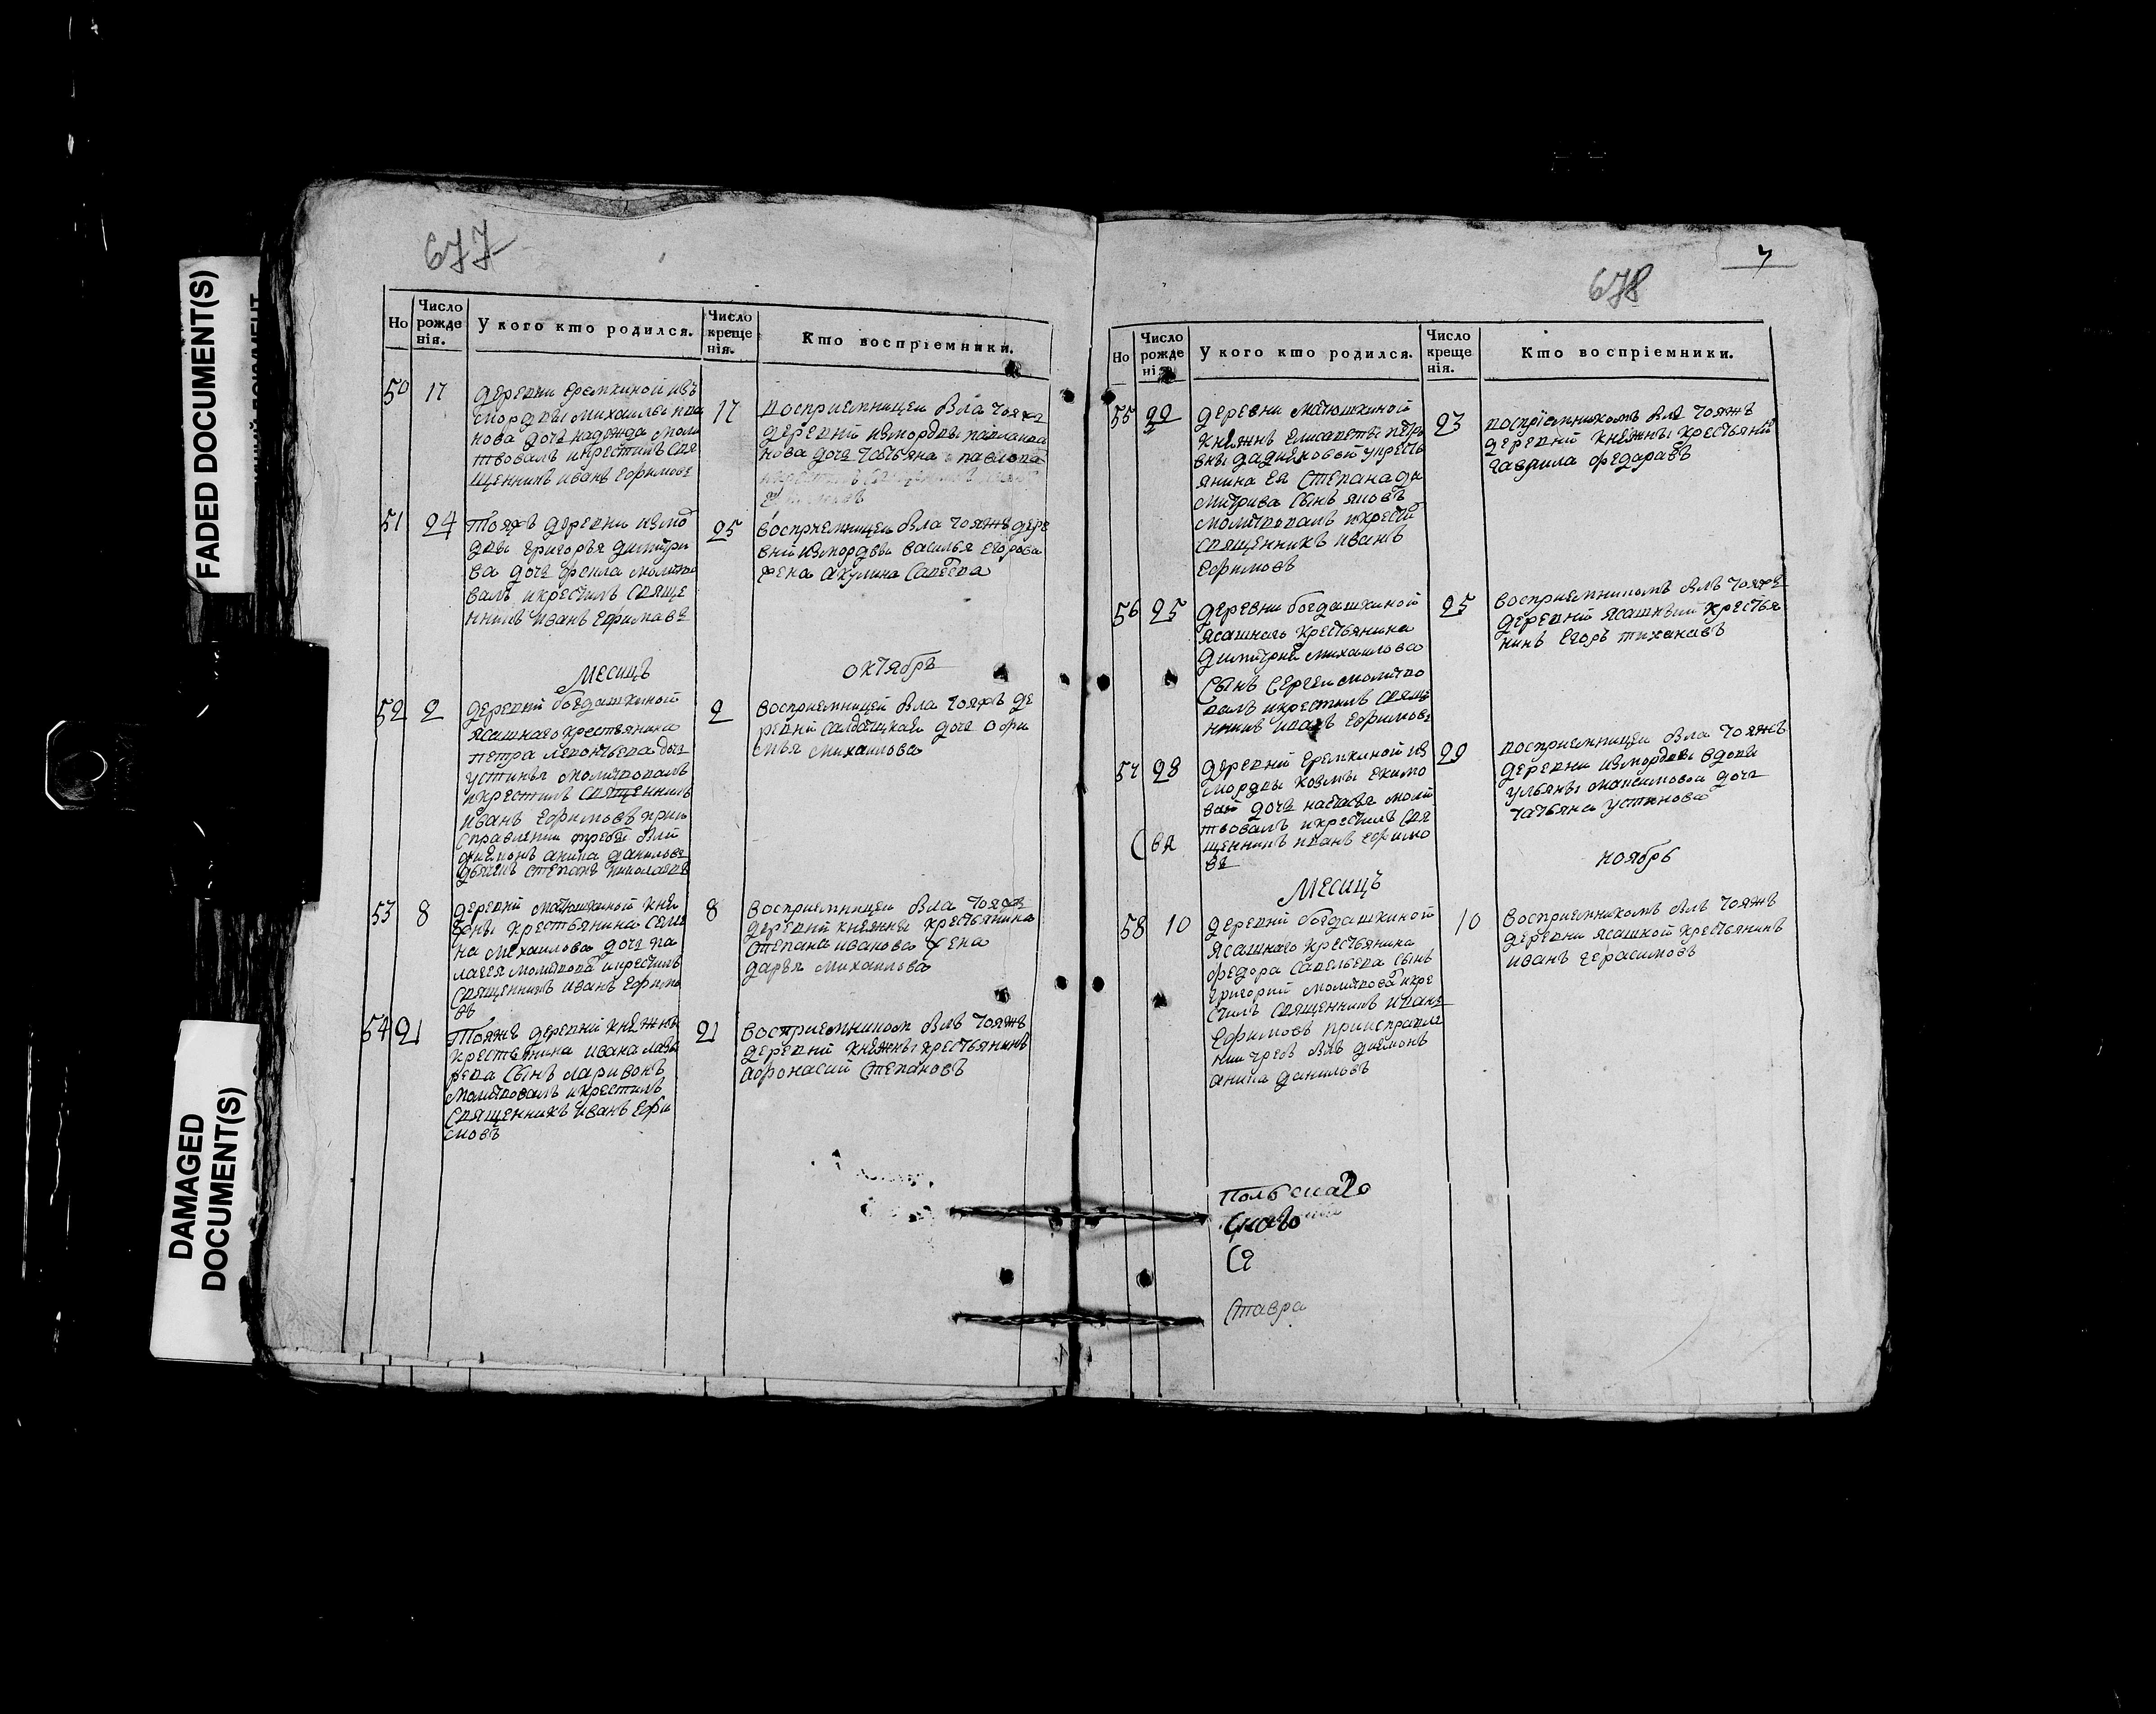 FADED DOCUMENT(S)
DAMAGED
DOCUMENT(S)
677
Но
Число
рожде
нія.
У кого кто родился.
Число
креще
нія.
Кто воспріемники.
50 17
деревни еремкиной изъ
мордвы михаилы
нова дочь надежда моли
твовалъ и крестилъ свя
щенникъ иванъ ефимовъ
17
восприемницеи была тояжъ
деревни измордвы
нова дочь татьяна павлова
51 24
тояжъ деревни измо
двы григорья дмитри
ва дочь фекла молитво
валъ и крестилъ свяще
нникъ иванъ ефимавъ
25
восприемницеи была тояжъ дере
вни измордвы василья егорова
жена акулина савеева
месицъ
октябрь
52 2
деревни богдашкиной
ясашнаго крестьянина
петра леконтьева дочь
устинья молитвовалъ
и крестилъ священникъ
иванъ ефимовъ при и
справлении требъ были
дияконъ аника даниловъ
дьячикъ степанъ николаевъ
2
восприемницей была тояжъ де
ревни салдатцкая дочь офи
мья михаилова
53 8
деревни матюшкиной кня
жны крестьянина семе
на михаилова дочь па
лагея молитвовалъ и крестилъ
священникъ иванъ ефимо
въ
8
восприемницеи была тояжъ
деревни княжны крестьянина
степана иванова жена
дарья михаилова
54 21
тояжъ деревни княжны
крестьянина ивана лаза
рева сынъ ларивонъ
молитвовалъ и крестилъ
священникъ иванъ ефи
мовъ
21
восприемникомъ былъ тояжъ
деревни княжны крестьянинъ
афонасии степановъ
678
7
Но
Число
рожде
нія.
У кого кто родился.
Число
креще
нія.
Кто воспріемники.
55 22
деревни матюшкиной
княжнъ елисаветы петро
вны дадияновой у кресть
янина ея степана ди
митрива сынъ яковъ
молитвовалъ и крести
священникъ иванъ
ефимовъ
23
воспріемникомъ былъ тояжъ
деревни княжны крестьянин
гаврила федаравъ
56 25
деревни богдашкиной
ясашнаго крестьянина
димитрия михаилова
сынъ сергеи молитво
валъ и крестилъ свящ
нникъ иванъ ефимовъ
25
восприемникомъ былъ тояжъ
деревни ясашный крестья
нинъ егоръ тихановъ
57 28
деревни еремкиной из
мордвы козмы екимо
ва дочь настасья моли
твовалъ и крестилъ свя
щенникъ иванъ ефимо
въ
29
восприемницеи была тояжъ
деревни измордвы вдовы
ульяны максимовой дочь
татьяна устинова
ноябрь
месицъ
58 10
деревни богдашкиной
ясашнаго крестьянина
федора савельева сынъ
григорий молитвовалъ и кре
стилъ священникъ иванъ
ефимовъ при исправле
нии требъ былъ дияконъ
аника даниловъ
10
восприемникомъ былъ тояжъ
деревни ясашной крестьянинъ
иванъ герасимовъ
польскаго
скаго
ся
ставра